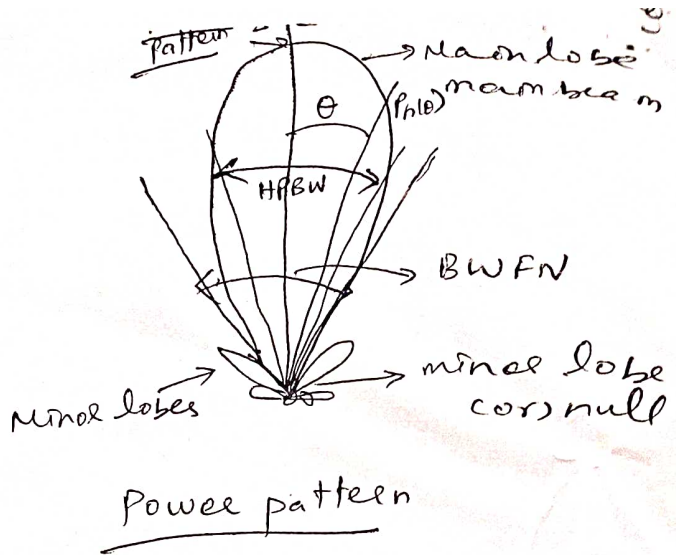 Pattern
Main lobe
main beam
θ
Pn(θ)
HPBW
BWFN
Minor lobes
minor lobe
(or) null
Power pattern